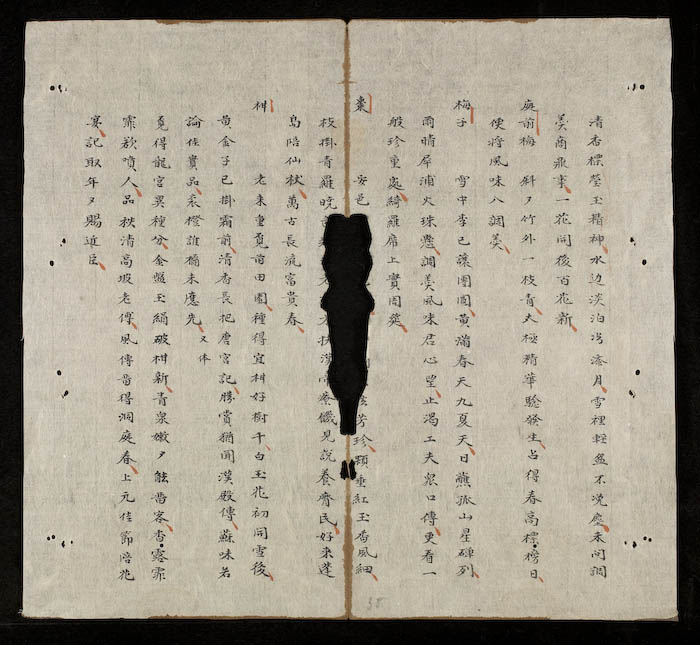 清香標瑩玉精神水边淡泊㳒漆月雪裡輕盈不浼塵未问調
羙商㶡事一花開後百花新
庭前梅 斜々竹外一枝青太極精華騐發生占得春高標榜日
便將風味八調羙
梅子 雪中李已讓團圓黃滿春天九夏天日蘸孤山星磾列
雨晴犀浦火珠懸調羮風味君心望止渴工夫眾口傳更看一
般珍重處綺羅席上實周筵
棗 安邑 芳珍顆垂紅玉香風細
枝掛青羅晚 扶漢 療儀見說養齊民好来蓬
島陪仙杖萬古長流富貴春
柑 老来重覓前田園種得宜柑好樹千白玉花初開雪後
黃金子已掛霜前清香長把唐宮記勝賞猶聞漢殿傳蘇味若
論佳實品来橙誰橘未應先 又体
覓得龍宮異種分金盤玉縜破柑新青泉嫩々能畱客香露霏
霏欲噴人品秩清高坡老傳風傳畱得洞庭春上元佳節陪花
宴記取年々賜近臣
38